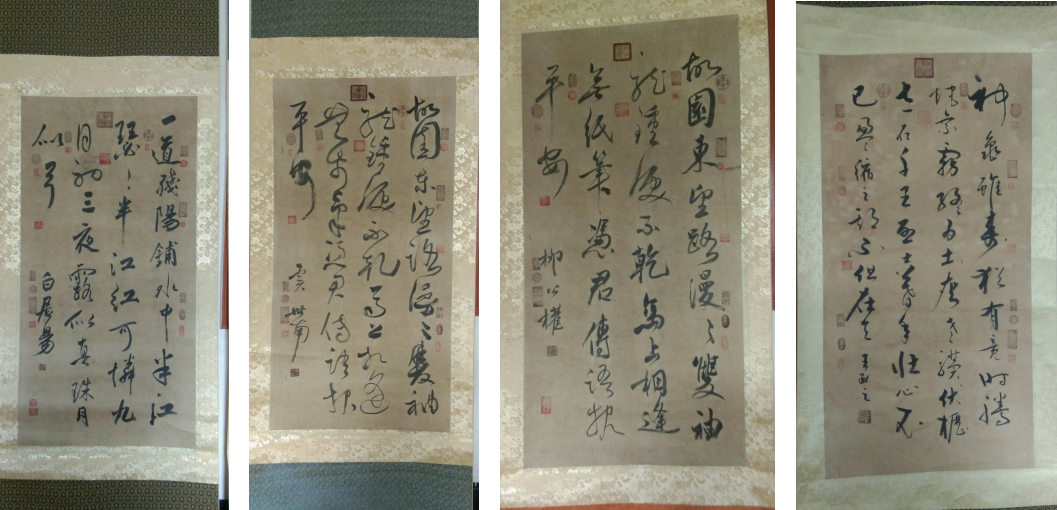 一道殘陽鋪水中半江
瑟〻半江紅可憐九
月初三夜露似真珠月
似弓
白居易
故園東望路漫〻雙袖
龍鍾淚不乾馬上相逢
無紙筆憑君傳語報
平安
虞世南
故園東望路漫〻雙袖
龍鍾淚不乾馬上相逢
無紙筆憑君傳語報
平安
柳公權
神龜雖壽猶有竟時騰
蛇乘霧終為土灰老驥伏櫪
志在千里烈士暮年壯心不
已盈縮之期不但在天
王獻之